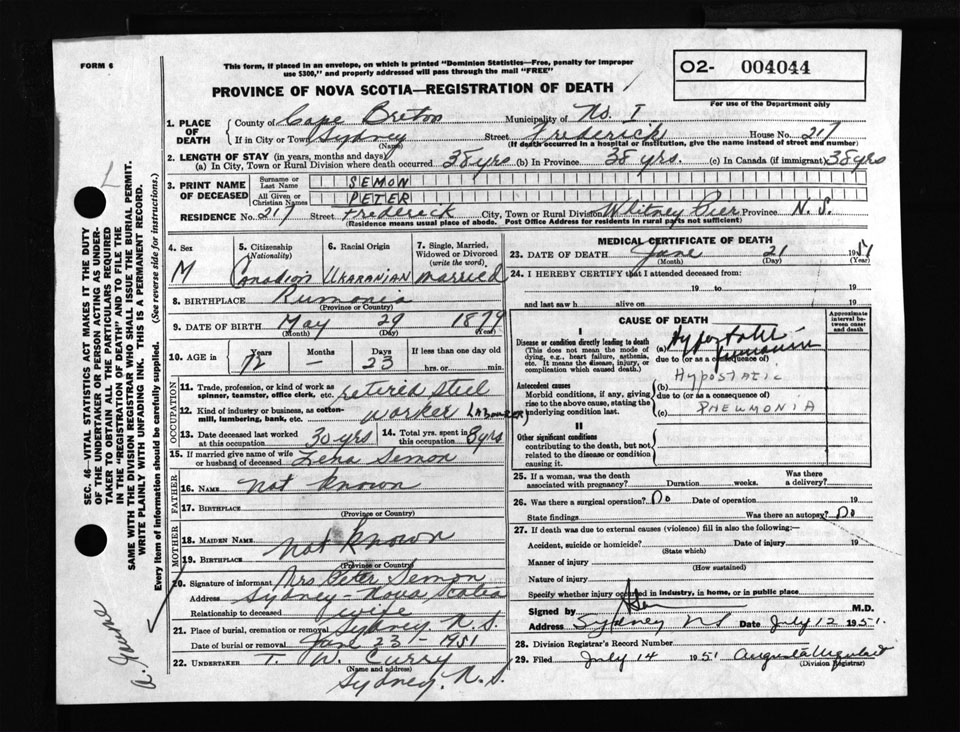 FORM 6
This form, if placed in an envelope, on which is printed "Dominion Statistics—Free, penalty for improper
use $300," and properly addressed will pass through the mail "FREE"
O2- 004044
For use of the Department only
PROVINCE OF NOVA SCOTIA—REGISTRATION OF DEATH
1. PLACE OF DEATH
County of Cape Breton Municipality of No. 1
If in City or Town Sydney Street Frederick House No. 217
(Name) (If death occurred in a hospital or institution, give the name instead of street and number)
2. LENGTH OF STAY (in years, months and days)
(a) In City, Town or Rural Division where death occurred 38 yrs (b) In Province 38 yrs. (c) In Canada (if immigrant) 38 yrs
3. PRINT NAME OF DECEASED
Surname or Last Name SEMON
All Given or Christian Names PETER
RESIDENCE No. 217 Street Frederick City, Town or Rural Division Whitney Pier Province N.S.
Residence means usual place of abode. Post Office Address for residents in rural parts not sufficient)
4. Sex M
5. Citizenship (Nationality) Canadion
6. Racial Origin Ukaranian
7. Single, Married, Widowed or Divorced (write the word) married
8. BIRTHPLACE Rumonia
(Province or Country)
9. DATE OF BIRTH May 29 1879
(Month) (Day) (Year)
10. AGE in Years Months Days If less than one day
72 - 23 hrs. or min.
OCCUPATION
11. Trade, profession, or kind of work as
spinner, teamster, office clerk, etc. retired steel
12. Kind of industry or business, as cotton-
mill, lumbering, bank, etc. worker Laborer
13. Date deceased last worked
at this occupation 30 yrs
14. Total yrs. spent in
this occupation 8 yrs
15. If married give name of wife
or husband of deceased Lena Semon
FATHER
16. NAME Not Known
17. BIRTHPLACE
(Province or Country)
MOTHER
18. MAIDEN NAME Not Known
19. BIRTHPLACE
(Province or Country)
20. Signature of informant Mrs Peter Semon
Address Sydney - Nova Scotia
Relationship to deceased wife
21. Place of burial, cremation or removal Sydney N.S.
Date of burial or removal June 23 - 1951
22. UNDERTAKER T. W. Curry
(Name and address)
Sydney, N.S.
MEDICAL CERTIFICATE OF DEATH
23. DATE OF DEATH June 21 1951
(Month) (Day) (Year)
24. I HEREBY CERTIFY that I attended deceased from:
19 to 19
and last saw h alive on 19
CAUSE OF DEATH
Approximate interval between onset and death
I
Disease or condition directly leading to death
(This does not mean the mode of
dying, e.g., heart failure, asthenia,
etc. It means the disease, injury, or
complication which caused death.)
(a) Hypostatic pneumonia
due to (or as a consequence of)
HYPOSTATIC
Antecedent causes
Morbid conditions, if any, giving
rise to the above cause, stating the
underlying condition last.
(b)
due to (or as a consequence of)
(c) PNEWMONIA
II
Other significant conditions
contributing to the death, but not
related to the disease or condition
causing it.
25. If a woman, was the death
associated with pregnancy? Duration weeks. Was there
a delivery?
26. Was there a surgical operation? No Date of operation 19
State findings Was there an autopsy? No
27. If death was due to external causes (violence) fill in also the following:—
Accident, suicide or homicide? Date of injury 19
(State which)
Manner of injury
(How sustained)
Nature of injury
Specify whether injury occurred in industry, in home, or in public place
Signed by M.D.
Address Sydney NS Date July 12 1951.
28. Division Registrar's Record Number
29. Filed July 14 1951 Augusta
(Division Registrar)
SEC. 46—VITAL STATISTICS ACT MAKES IT THE DUTY
OF THE UNDERTAKER OR PERSON ACTING AS UNDER-
TAKER TO OBTAIN ALL THE PARTICULARS REQUIRED
IN THE "REGISTRATION OF DEATH" AND TO FILE THE
SAME WITH THE DIVISION REGISTRAR WHO SHALL ISSUE THE BURIAL PERMIT.
WRITE PLAINLY WITH UNFADING INK. THIS IS A PERMANENT RECORD.
Every item of information should be carefully supplied. (See reverse side for instructions.)